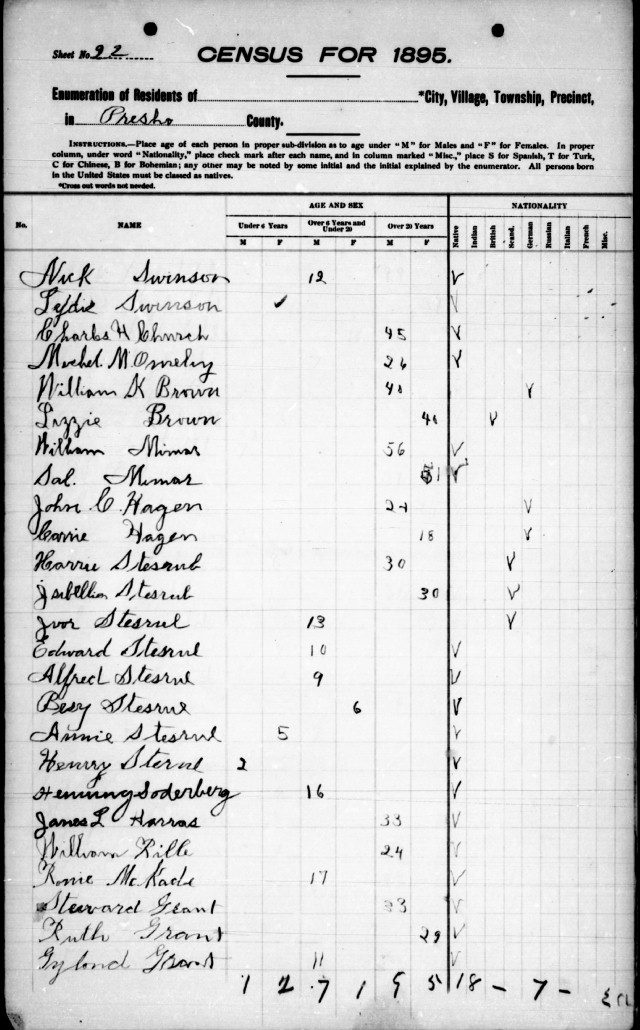 Sheet No. 92
CENSUS FOR 1895.
Enumeration of Residents of *City, Village, Township, Precinct,
in Presho County.
INSTRUCTIONS.—Place age of each person in proper sub-division as to age under "M" for Males and "F" for Females. In proper
column, under word "Nationality," place check mark after each name, and in column marked "Misc.," place S for Spanish, T for Turk,
C for Chinese, B for Bohemian; any other may be noted by some initial and the initial explained by the enumerator. All persons born
in the United States must be classed as natives.
*Cross out words not needed.
AGE AND SEX NATIONALITY
No. NAME Under 6 Years Over 6 Years and Under 20 Over 20 Years Native Indian British Scand. German Russian Italian French Misc.
M F M F M F
Nick Swinson 12 V
Lydie Swinson ✓ V
Charles H Church 45 V
Michel M. Omeliy 26 V
William K Brown 48 V
Lizzie Brown 40 V
William Mimar 56 V
Sal. Mimar 51 V
John C. Hagen 24 V
Carrie Hagen 18 V
Harrie Stesrub 30 V
Isabellia Stesrub 30 V
Ivor Stesrul 13 V
Edward Stesrul 10 V
Alfred Stesrul 9 V
Besy Stesrue 6 V
Annie Stesrul 5 V
Henrry Sterul 2 V
Henning Soderberg 16 V
James L Harras 33 V
William Kille 24 V
Romie McKade 17 V
Steward Grant 33 V
Ruth Grant 29 V
Gylond Grant 11 V
1 2 7 1 9 5 18 – 7 –